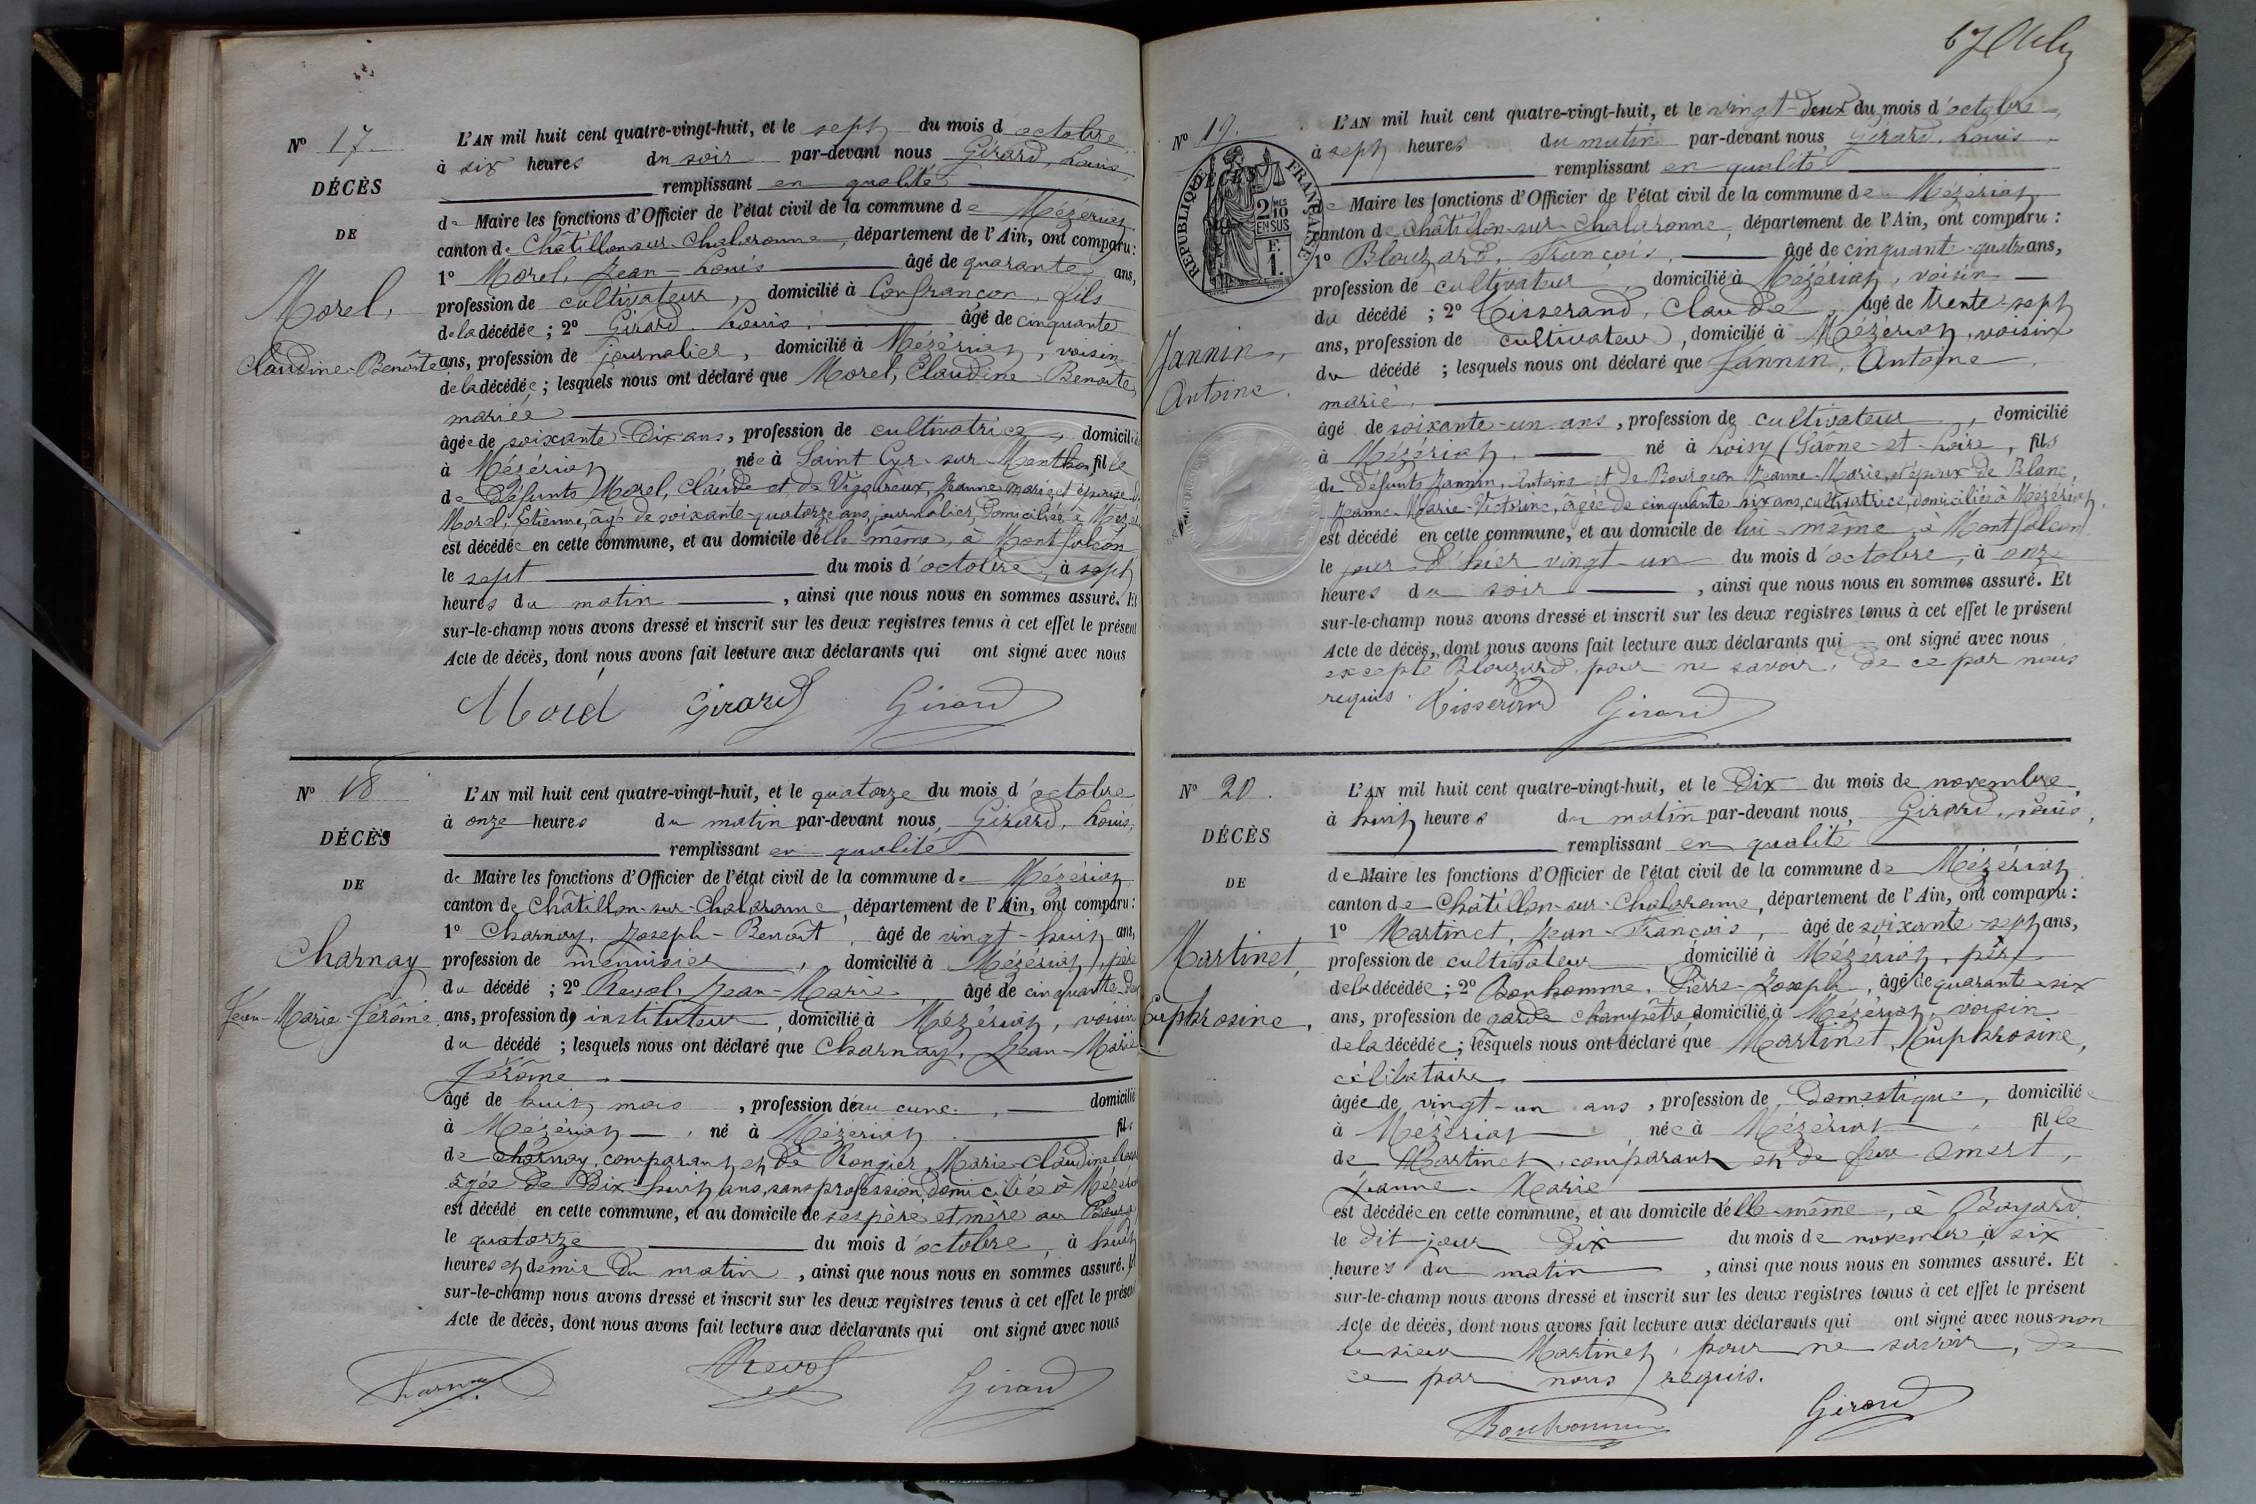 Nº 17.
DÉCÈS
DE
Morel,
Claudine-Benoite
L'AN mil huit cent quatre-vingt-huit, et le sept du mois d'octobre
à six heures du soir par-devant nous Girard, Louis,
remplissant en qualité
de Maire les fonctions d'Officier de l'état civil de la commune de Mézériat
canton de Châtillon-sur-Chalaronne, département de l'Ain, ont comparu :
1º Morel, Jean-Louis âgé de quarante ans,
profession de cultivateur, domicilié à Confrançon, fils
de la décédée ; 2º Girard, Louis, âgé de cinquante
ans, profession de journalier, domicilié à Mézériat, voisin
de la décédée ; lesquels nous ont déclaré que Morel, Claudine-Benoite,
mariée
âgée de soixante-dix ans, profession de cultivatrice, domicilié
à Mézériat née à Saint Cyr-sur-Menthon fille
de défunts Morel, Claude et de Vigoureux, Jeanne Marie et épouse de
Morel, Etienne, âgé de soixante-quatorze ans, journalier, domicilié à Mézé
est décédée en cette commune, et au domicile d'elle même, à Montfalcon
le sept du mois d'octobre, à sept
heures du matin, ainsi que nous nous en sommes assuré. Et
sur-le-champ nous avons dressé et inscrit sur les deux registres tenus à cet effet le présent
Acte de décès, dont nous avons fait lecture aux déclarants qui ont signé avec nous
Morel Girard Girard
Nº 18
DÉCÈS
DE
Charnay
Jean-Marie-Jérôme
L'AN mil huit cent quatre-vingt-huit, et le quatorze du mois d'octobre
à onze heures du matin par-devant nous, Girard, Louis,
remplissant en qualité
de Maire les fonctions d'Officier de l'état civil de la commune de Mézériat
canton de Châtillon-sur-Chalaronne, département de l'Ain, ont comparu :
1º Charnay, Joseph-Benoît, âgé de vingt-huit ans,
profession de menuisier, domicilié à Mézériat, père
du décédé ; 2º Revol, Jean-Marie, âgé de cinquante deux
ans, profession d'instituteur, domicilié à Mézériat, voisin
du décédé ; lesquels nous ont déclaré que Charnay, Jean-Marie-
Jérôme.
âgé de huit mois, profession de aucune, domicilié
à Mézériat, né à Mézériat fils
de Charnay, comparant et de Rongier, Marie-Claudine
âgée de dix huit ans, sans profession, domiciliée à Mézériat
est décédé en cette commune, et au domicile de ses père et mère au Bourg
le quatorze du mois d'octobre, à huit
heures et demie du matin, ainsi que nous nous en sommes assuré. Et
sur-le-champ nous avons dressé et inscrit sur les deux registres tenus à cet effet le présent
Acte de décès, dont nous avons fait lecture aux déclarants qui ont signé avec nous
Charnay Revol Girard
67
Nº 19.
RÉPUBLIQUE FRANÇAISE
2/10 MES
EN SUS
F.
1.
Jannin,
Antoine.
L'AN mil huit cent quatre-vingt-huit, et le vingt-deux du mois d'octobre,
à sept heures du matin par-devant nous Girard, Louis
remplissant en qualité
de Maire les fonctions d'Officier de l'état civil de la commune de Mézériat
canton de Châtillon-sur-Chalaronne, département de l'Ain, ont comparu :
1º Blouzard, François, âgé de cinquante-quatre ans,
profession de cultivateur, domicilié à Mézériat, voisin
du décédé ; 2º Tisserand, Claude, âgé de trente-sept
ans, profession de cultivateur, domicilié à Mézériat, voisin
du décédé ; lesquels nous ont déclaré que Jannin, Antoine,
marié,
âgé de soixante-un ans, profession de cultivateur, domicilié
à Mézériat, né à Loisy (Saône-et-Loire, fils
de défunts Jannin, Antoine et de Bourgeon Jeanne-Marie, et époux de Blanc,
Jeanne-Marie-Victorine, âgée de cinquante six ans, cultivatrice, domiciliée à Mézériat,
est décédé en cette commune, et au domicile de lui-même, à Montfalcon
le jour d'hier vingt-un du mois d'octobre, à onze
heures du soir, ainsi que nous nous en sommes assuré. Et
sur-le-champ nous avons dressé et inscrit sur les deux registres tenus à cet effet le présent
Acte de décès, dont nous avons fait lecture aux déclarants qui ont signé avec nous
excepté Blouzard pour ne savoir, de ce par nous
requis. Tisserand Girard
Nº 20.
DÉCÈS
DE
Martinet,
Euphrosine.
L'AN mil huit cent quatre-vingt-huit, et le dix du mois de novembre,
à huit heures du matin par-devant nous, Girard, Louis,
remplissant en qualité
de Maire les fonctions d'Officier de l'état civil de la commune de Mézériat
canton de Châtillon-sur-Chalaronne, département de l'Ain, ont comparu :
1º Martinet, Jean-François, âgé de soixante-sept ans,
profession de cultivateur domicilié à Mézériat, père
de la décédée ; 2º Bonhomme, Pierre-Joseph, âgé de quarante-six
ans, profession de garde champêtre, domicilié à Mézériat, voisin
de la décédée ; lesquels nous ont déclaré que Martinet, Euphrosine,
célibataire
âgée de vingt-un ans, profession de Domestique, domiciliée
à Mézériat née à Mézériat, fille
de Martinet, comparant et de feue Amert,
Jeanne-Marie
est décédée en cette commune, et au domicile d'elle-même, à Bayard
le dit jour dix du mois de novembre, à six
heures du matin, ainsi que nous nous en sommes assuré. Et
sur-le-champ nous avons dressé et inscrit sur les deux registres tenus à cet effet le présent
Acte de décès, dont nous avons fait lecture aux déclarants qui ont signé avec nous non
le sieur Martinet, pour ne savoir, de
ce par nous requis.
Bonhomme Girard